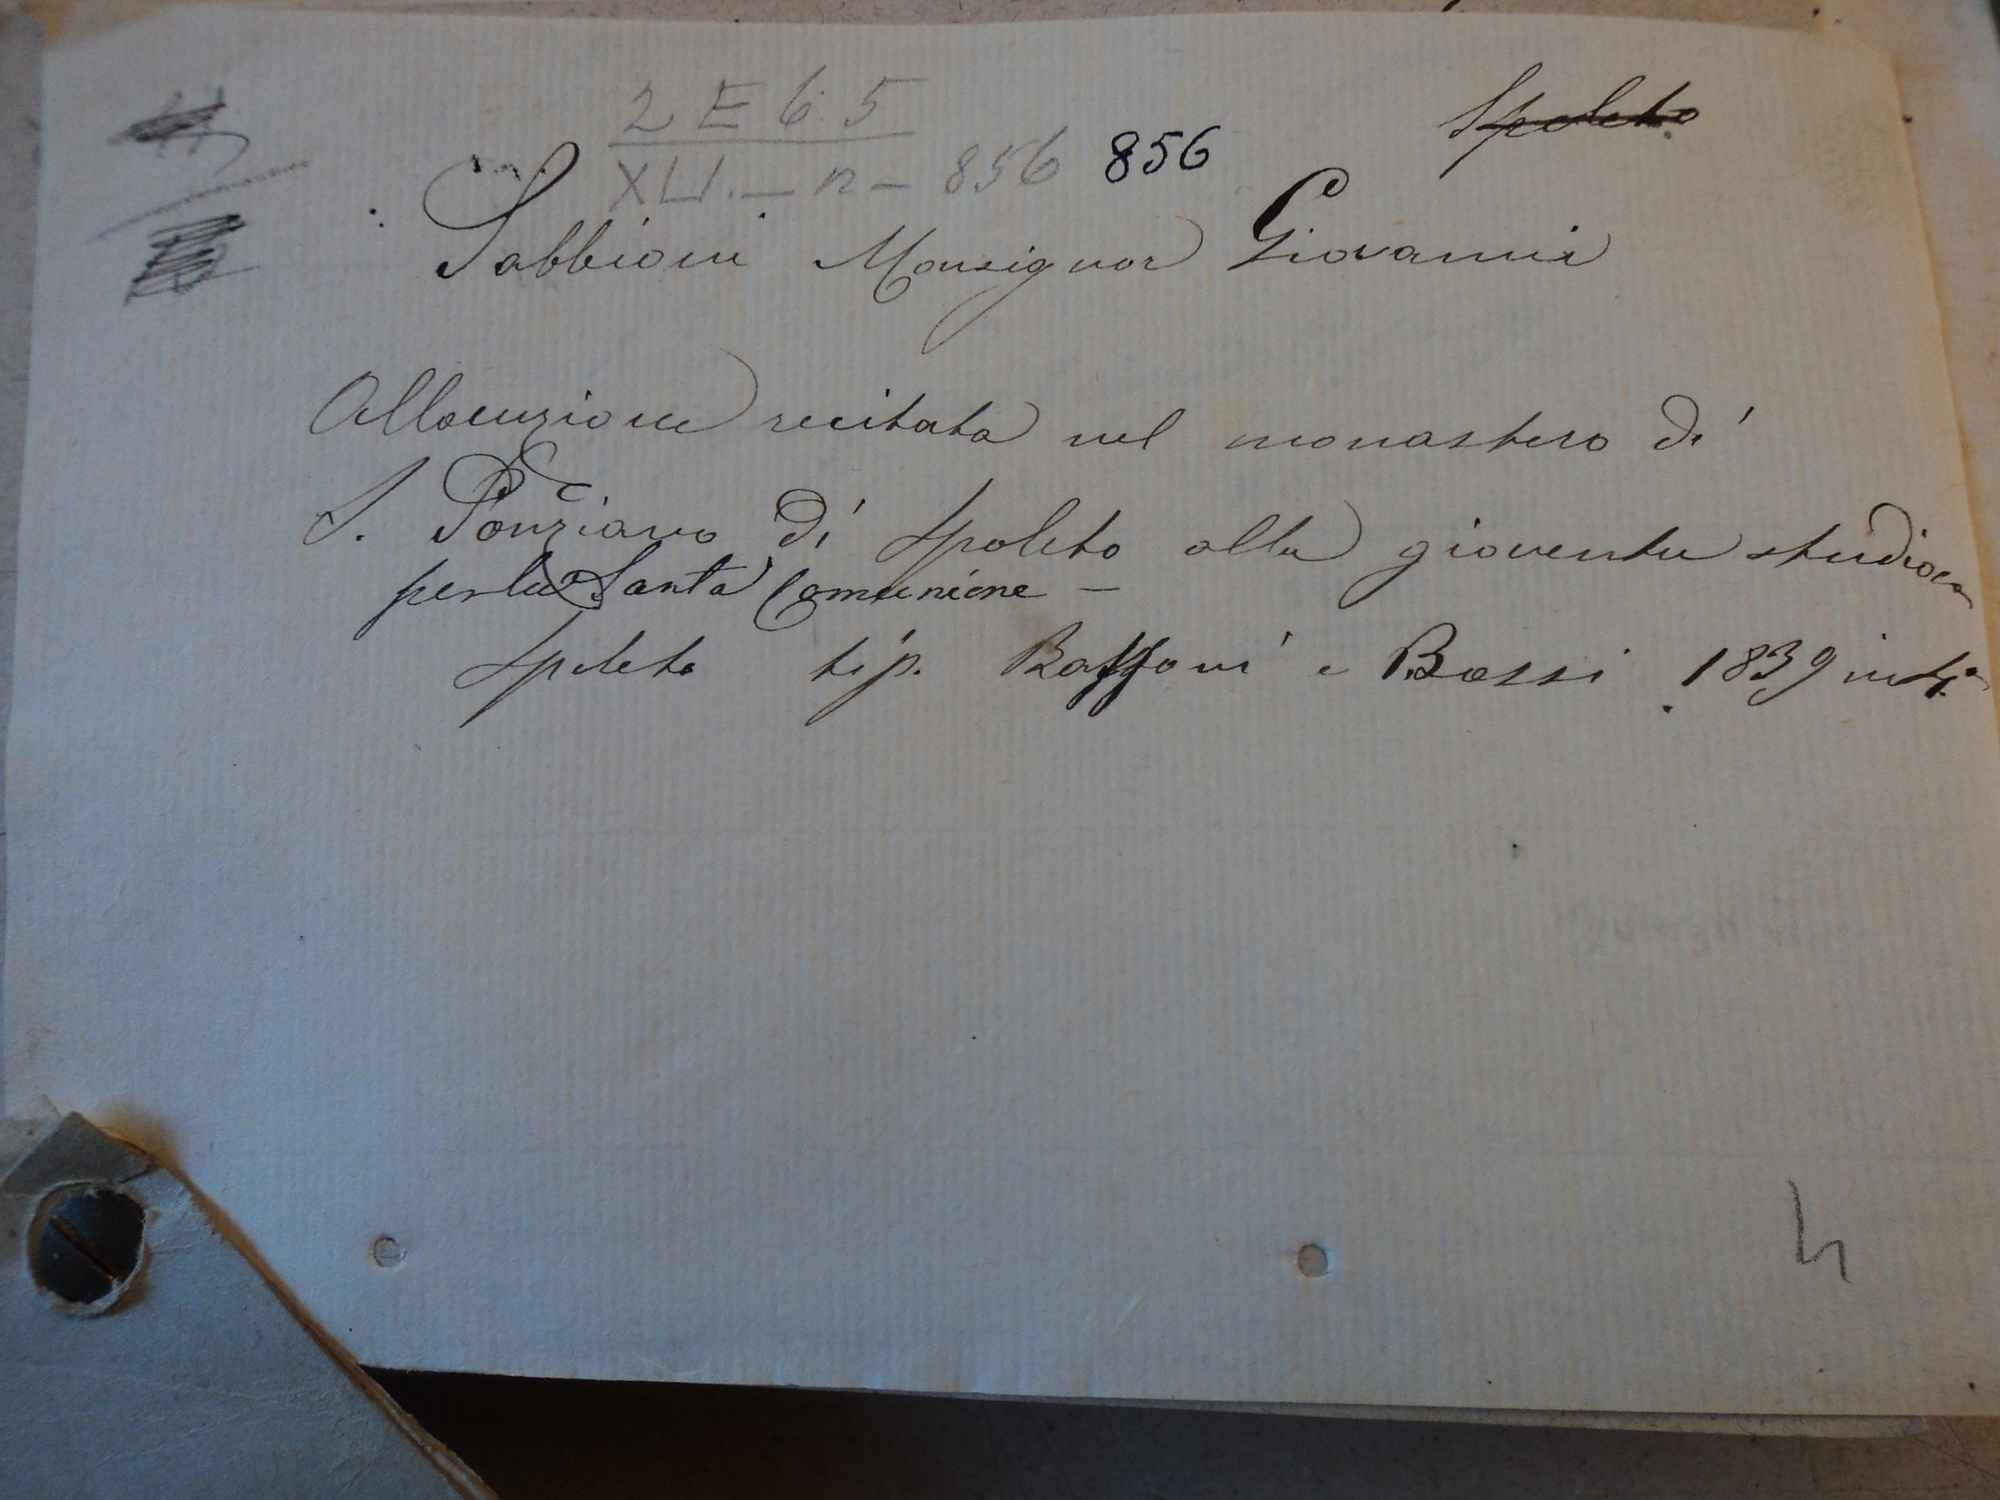 2 E 6 5
Spoleto
XLI. - n - 856 856
Sabbioni Monsignor Giovanni
Allocuzione recitata nel monastero di
S. Ponziano di Spoleto alla gioventu studiosa
per la Santa Comunione -
Spoleto tip. Bassoni e Bossi 1839 in 4°
4